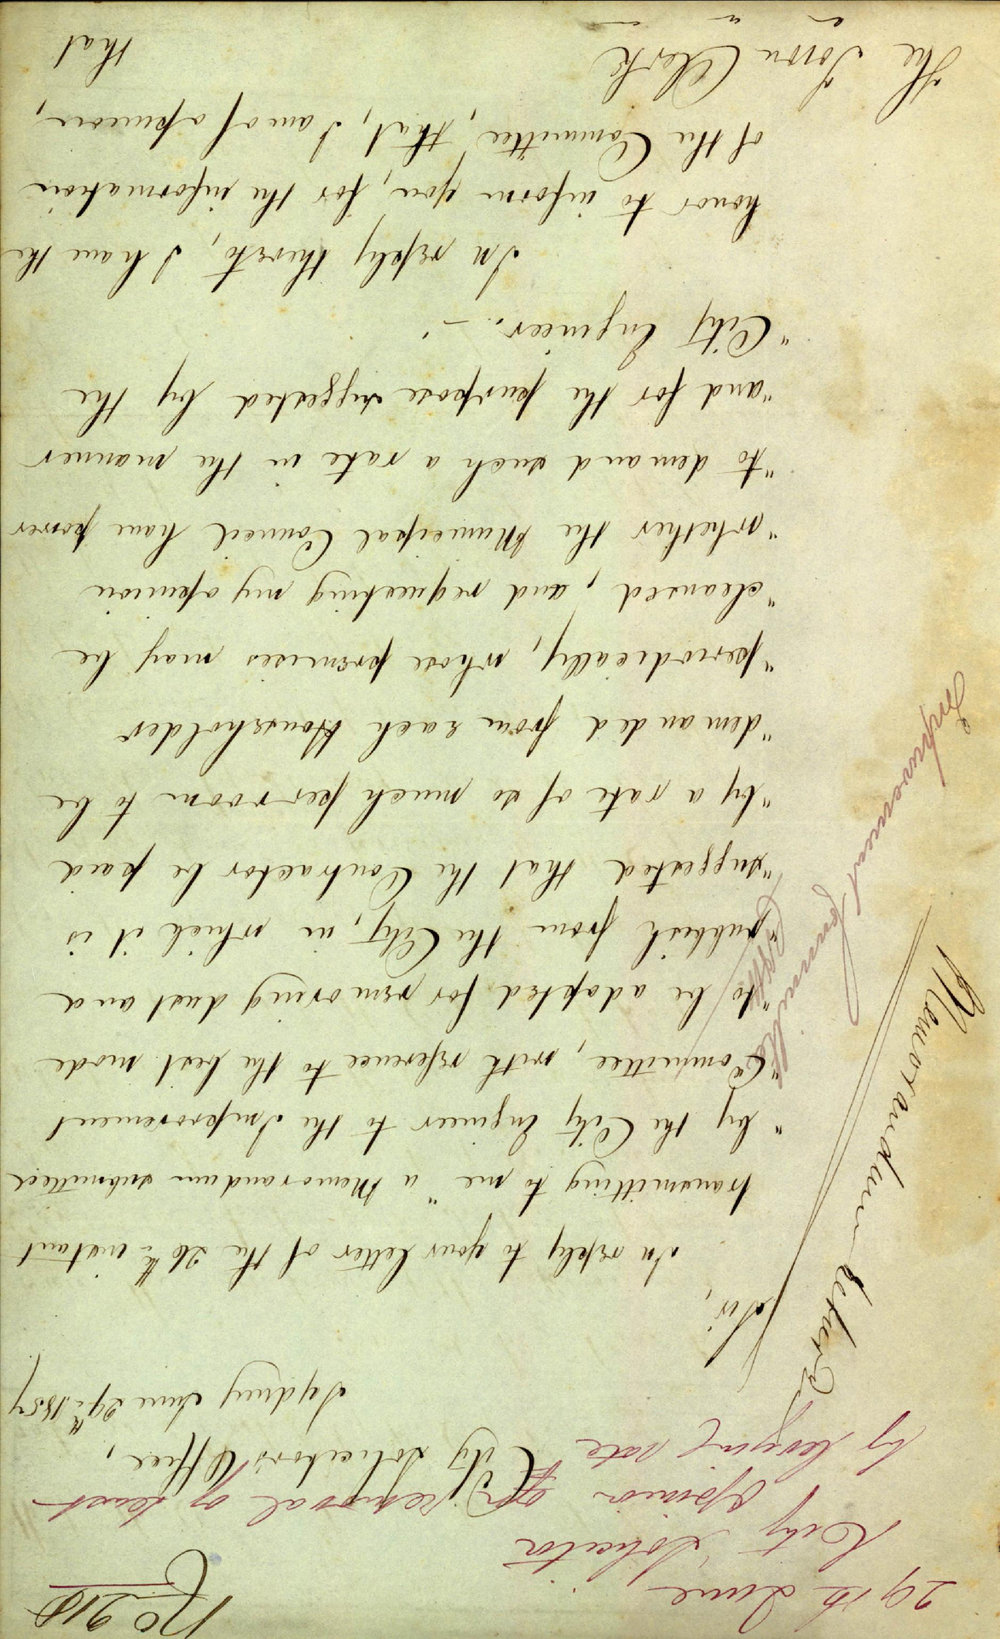 No 918
29th June
City Solicitor
Opinion on removal of dust
by levying rate
City Solicitor's Office,
Sydney June 29th 1857
Memorandum returned
Improvement Committee
Sir,
In reply to your letter of the 26th instant
transmitting to me "a Memorandum submitted
"by the City Engineer to the Improvement
"Committee, with reference to the best mode
"to be adopted for removing dust and
"rubbish from the City, in which it is
"suggested that the Contractor be paid
"by a rate of so much per room to be
"demanded from each Householder
"periodically, whose premises may be
"cleansed, and requesting my opinion
"whether the Municipal Council have power
"to demand such a rate in the manner
"and for the purpose suggested by the
"City Engineer. —"
In reply thereto, I have the
honor to inform you, for the information
of the Committee, that, I am of opinion,
that
The Town Clerk